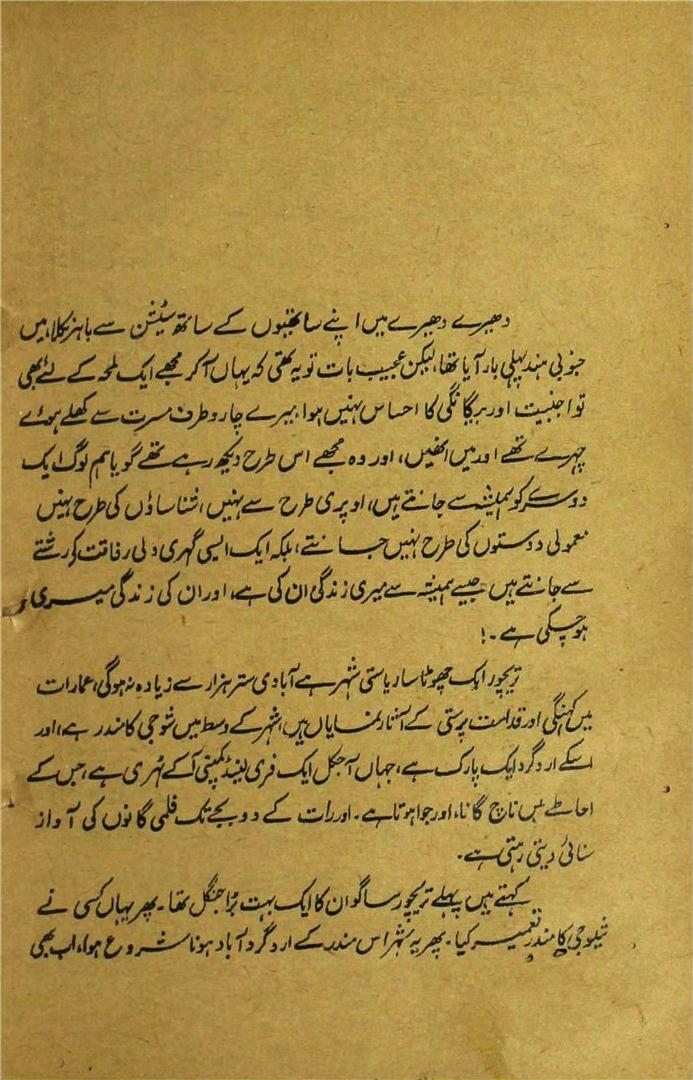 دھیرے دھیرے میں اپنے ساتھیوں کے ساتھ سٹیشن سے باہر نکلا، میں
جنوبی ہند پہلی بار آیا تھا، لیکن عجیب بات تو یہ تھی کہ یہاں آ کر مجھے ایک لمحہ کے لئے بھی
تو اجنبیت اور بیگانگی کا احساس نہیں ہوا، میرے چاروطرف مسرت سے کھلے ہوئے
چہرے تھے اور میں انھیں، اور وہ مجھے اس طرح دیکھ رہے تھے گویا ہم لوگ ایک
دوسرے کو ہمیشہ سے جانتے ہیں، اوپری طرح سے نہیں، شناساؤں کی طرح نہیں
معمولی دوستوں کی طرح نہیں جانتے، بلکہ ایک ایسی گہری دلی رفاقت کے رشتے
سے جانتے ہیں جیسے ہمیشہ سے میری زندگی ان کی ہے، اور ان کی زندگی میری
ہو چکی ہے۔!
تریچور ایک چھوٹا سا ریاستی شہر ہے آبادی ستر ہزار سے زیادہ نہ ہوگی، عمارات
میں کہنگی اور قدامت پرستی کے آثار نمایاں ہیں، شہر کے وسط میں شوجی کا مندر ہے، اور
اسکے ارد گرد ایک پارک ہے، جہاں آجکل ایک فری لینڈ کمپنی آ کے ٹھری ہے، جس کے
احاطے میں ناچ گانا، اور جوا ہوتا ہے۔ اور رات کے دو بجے تک فلمی گانوں کی آواز
سنائی دیتی رہتی ہے۔
کہتے ہیں پہلے تریچور ساگوان کا ایک بہت بڑا جنگل تھا۔ پھر یہاں کسی نے
شیوجی کا مندر تعمیر کیا۔ پھر یہ شہر اس مندر کے ارد گرد آباد ہونا شروع ہوا، اب بھی